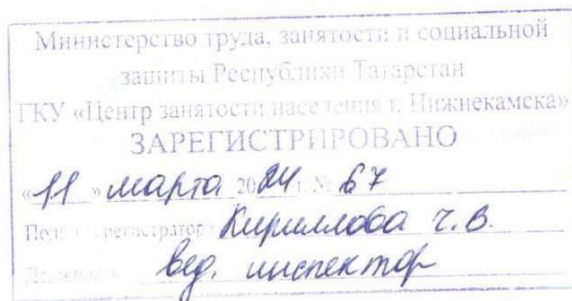 Министерство труда, занятости и социальной
защиты Республики Татарстан
ГКУ «Центр занятости населения г. Нижнекамска»
ЗАРЕГИСТРИРОВАНО
«11» марта 2024 г. № 67
регистратор Кириллова г.В.
вед. инспектор